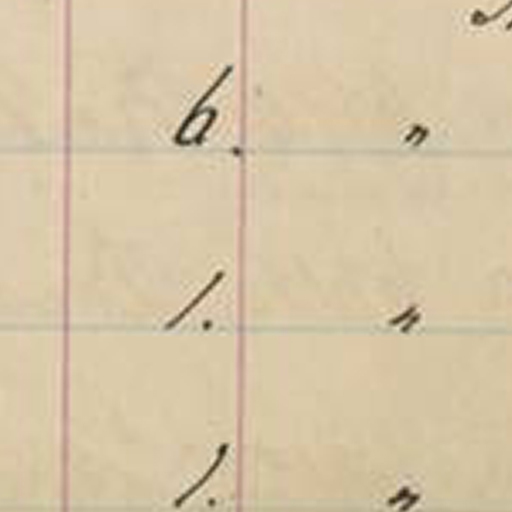 6. "
1. "
1. "